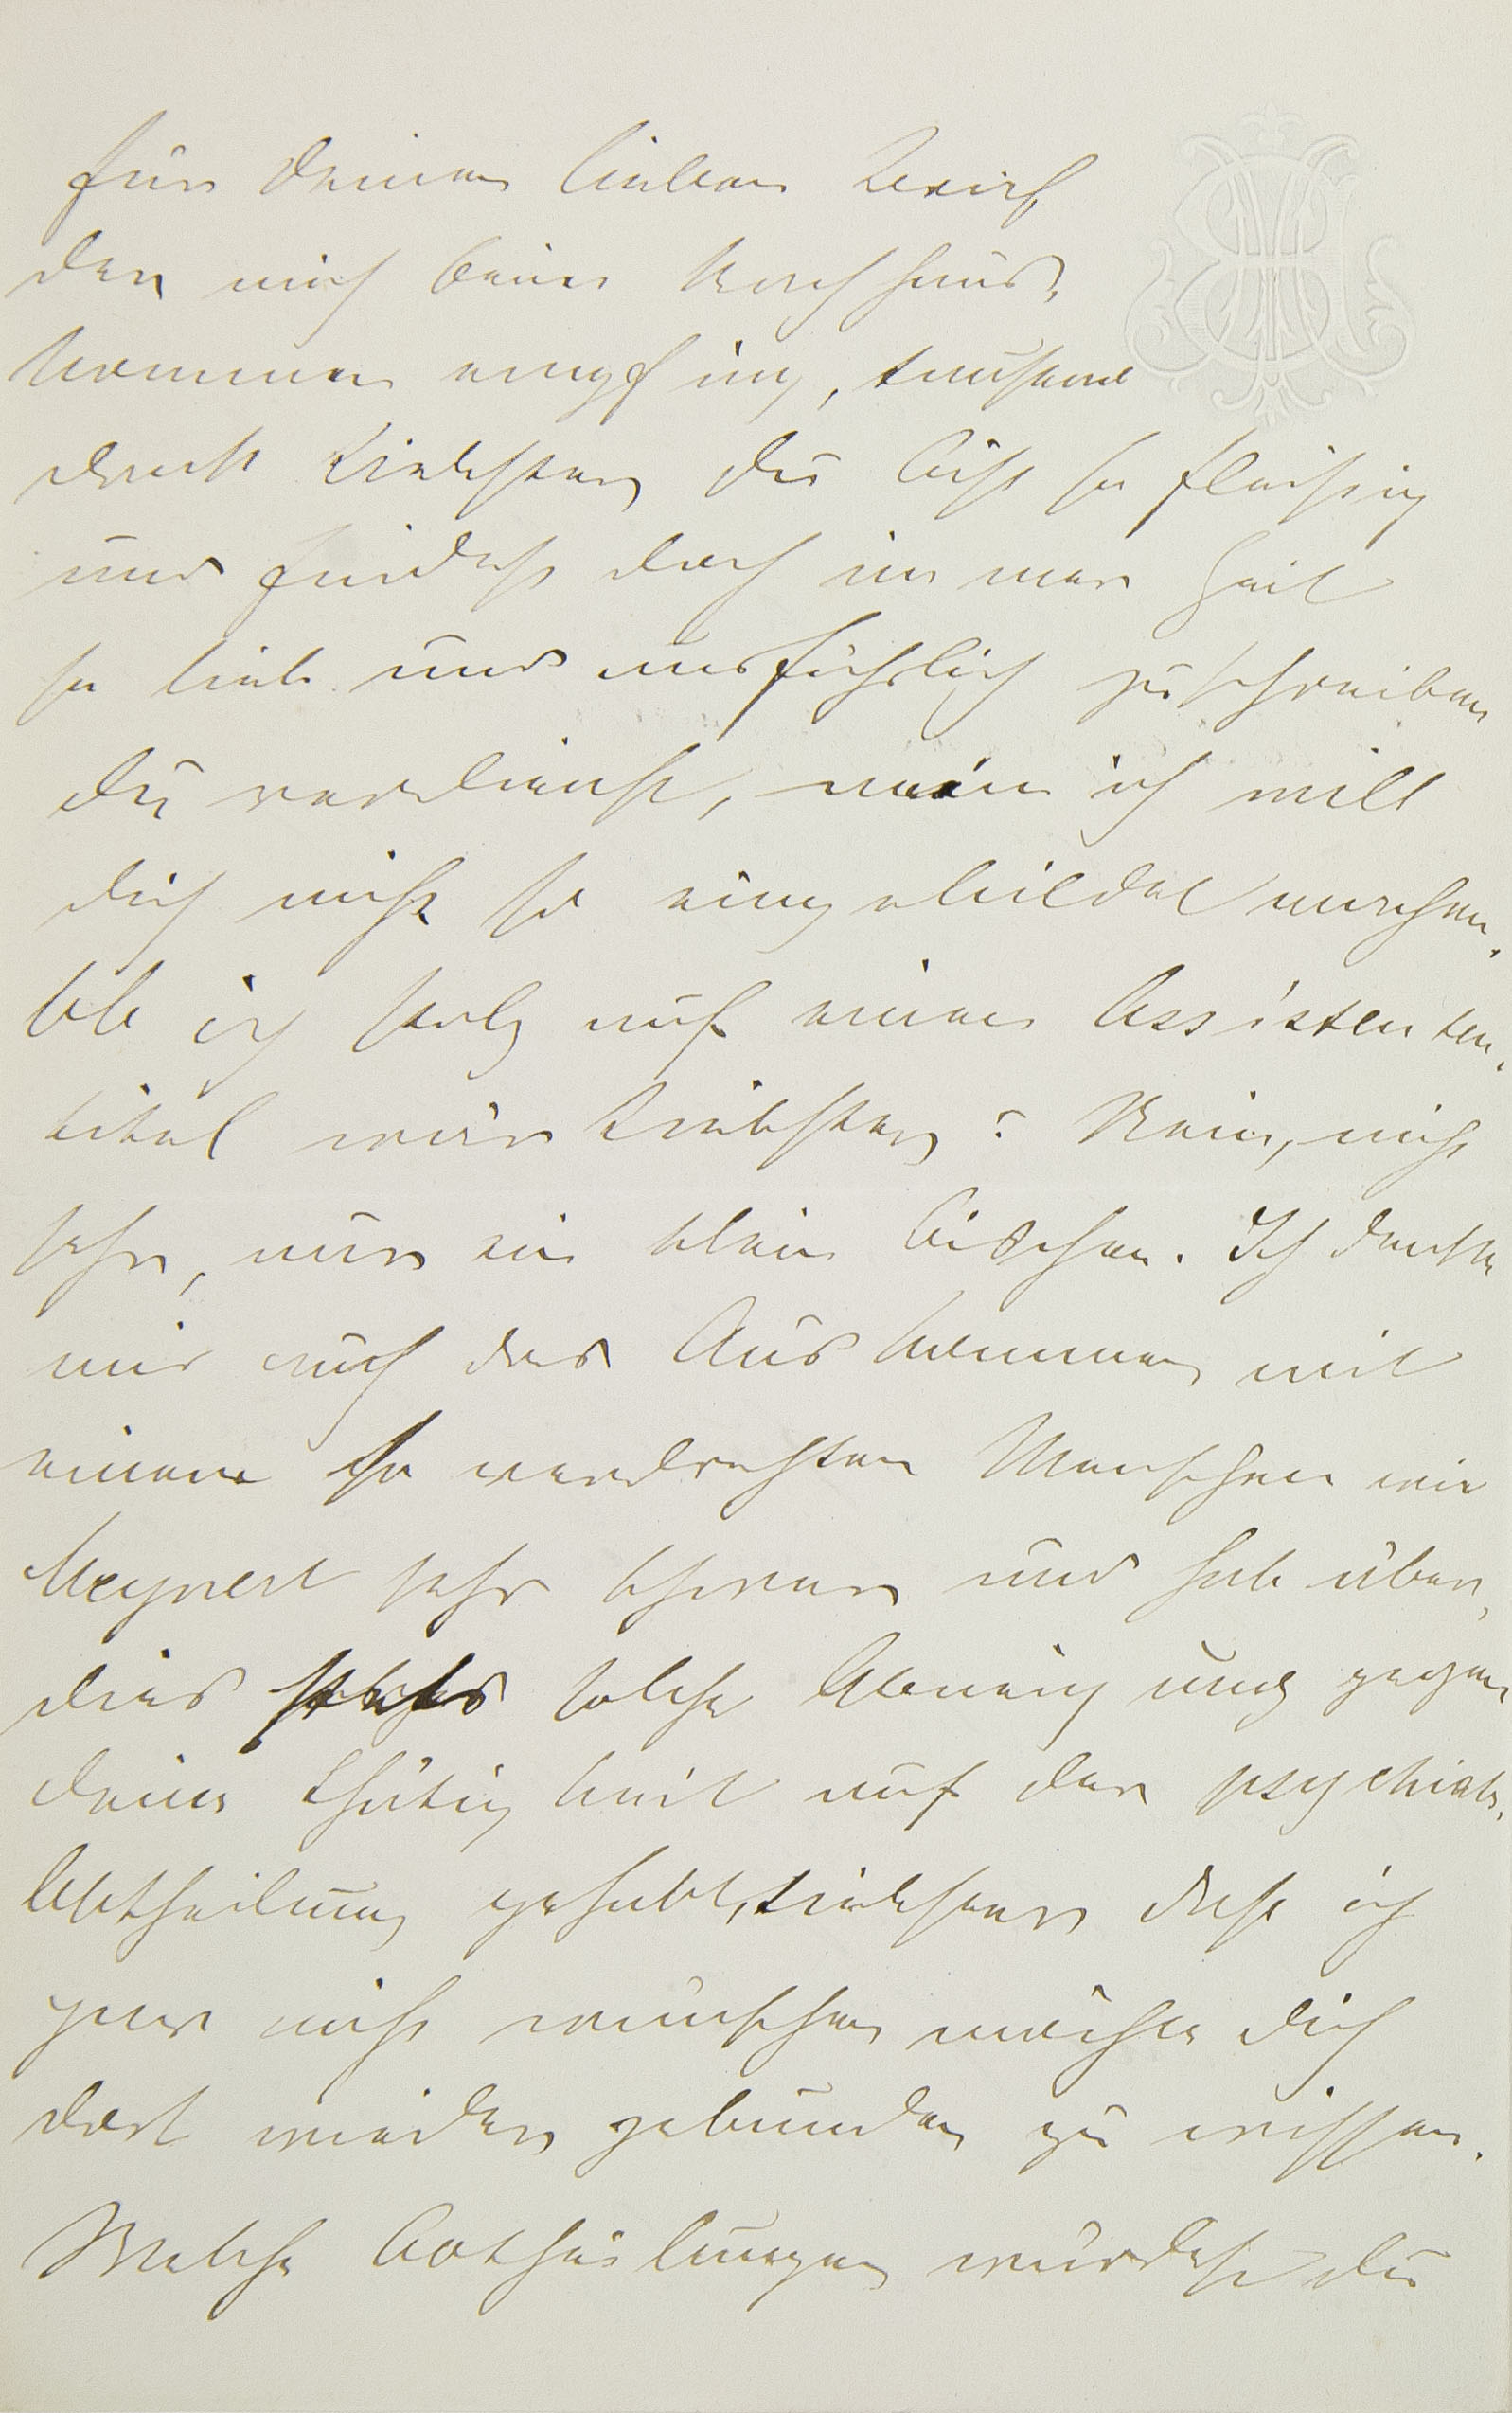 für deinen lieben Brief
der mich beim Nachhaus-
kommen empfing, tausend
Dank Liebster, du bist so fleißig
und findest doch immer Zeit
so lieb und ausführlich zu schreiben
du verdienst, nein ich will
dich nicht so eingebildet machen.
Ob ich stolz auf einen Assistenten-
titel wär Liebster? Nein, nicht
sehr, nur ein klein bischen. Ich denke
mir auch das Auskommen mit
einem so verdrehten Menschen wie
Meynert sehr schwer und hab über-
dies solche Abneigung gegen
deine Thätigkeit auf der psychiatr.
Abtheilung gehabt, Liebster daß ich
gar nicht wünschen möchte dich
dort wieder gebunden zu wissen.
Welche Abtheilungen würdest du